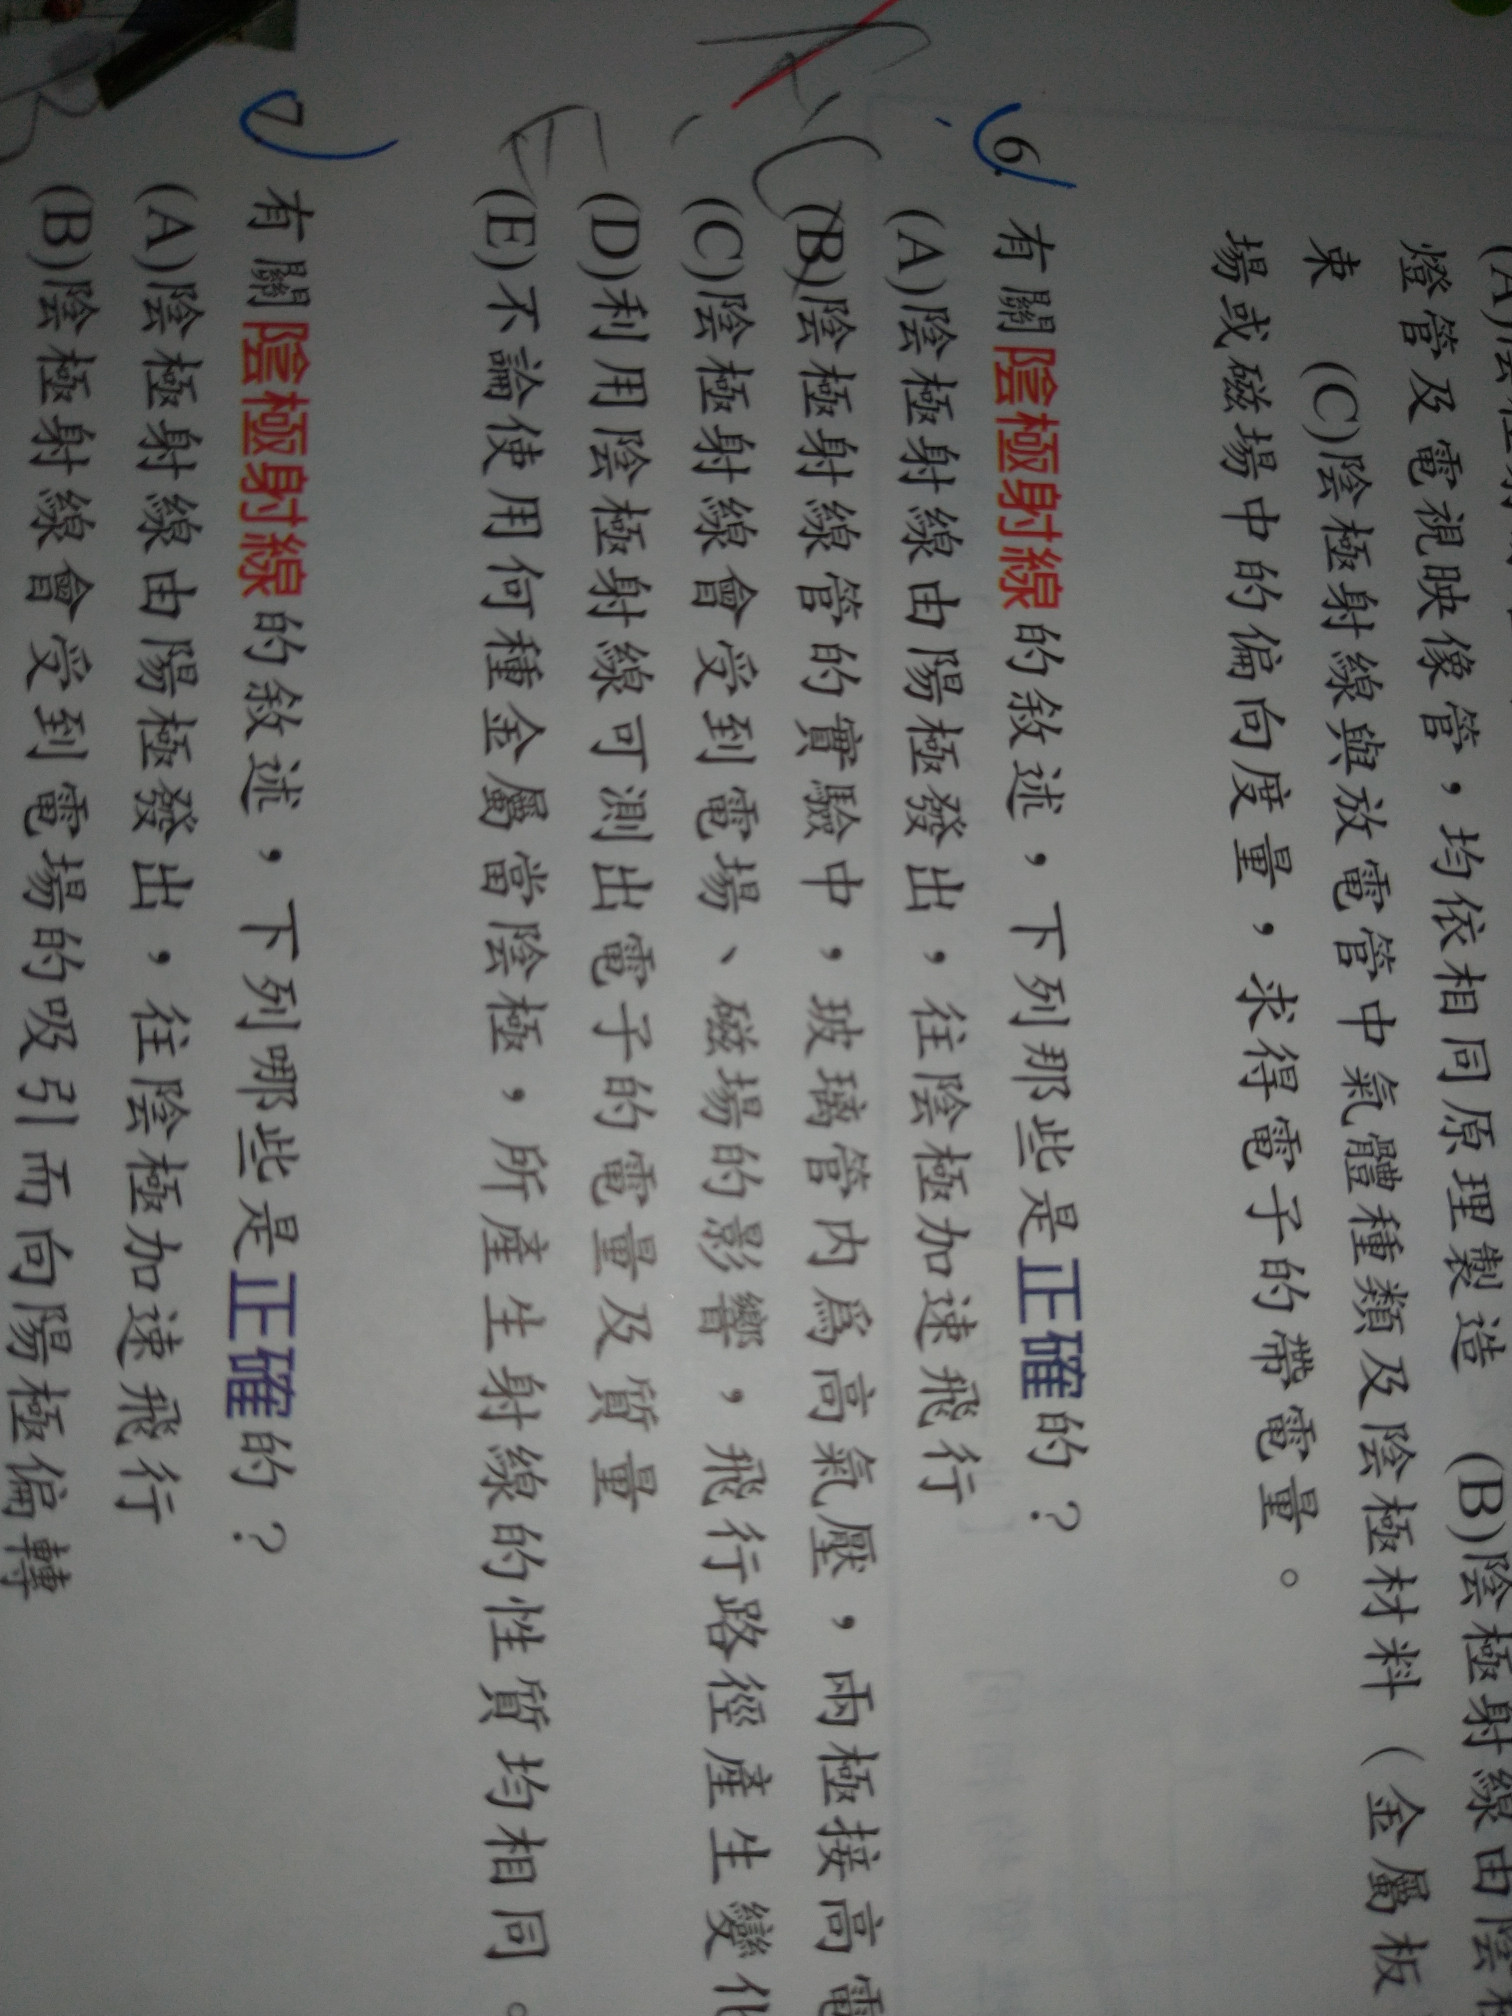 燈管及電視映像管，均依相同原理製造 (B)陰極射線由陰極
束 (C)陰極射線與放電管中氣體種類及陰極材料（金屬板
場或磁場中的偏向度量，求得電子的帶電量。
6. 有關陰極射線的敘述，下列那些是正確的？
(A)陰極射線由陽極發出，往陰極加速飛行
(B)陰極射線管的實驗中，玻璃管內為高氣壓，兩極接高電
(C)陰極射線會受到電場、磁場的影響，飛行路徑產生變化
(D)利用陰極射線可測出電子的電量及質量
(E)不論使用何種金屬當陰極，所產生射線的性質均相同。
7. 有關陰極射線的敘述，下列哪些是正確的？
(A)陰極射線由陽極發出，往陰極加速飛行
(B)陰極射線會受到電場的吸引而向陽極偏轉